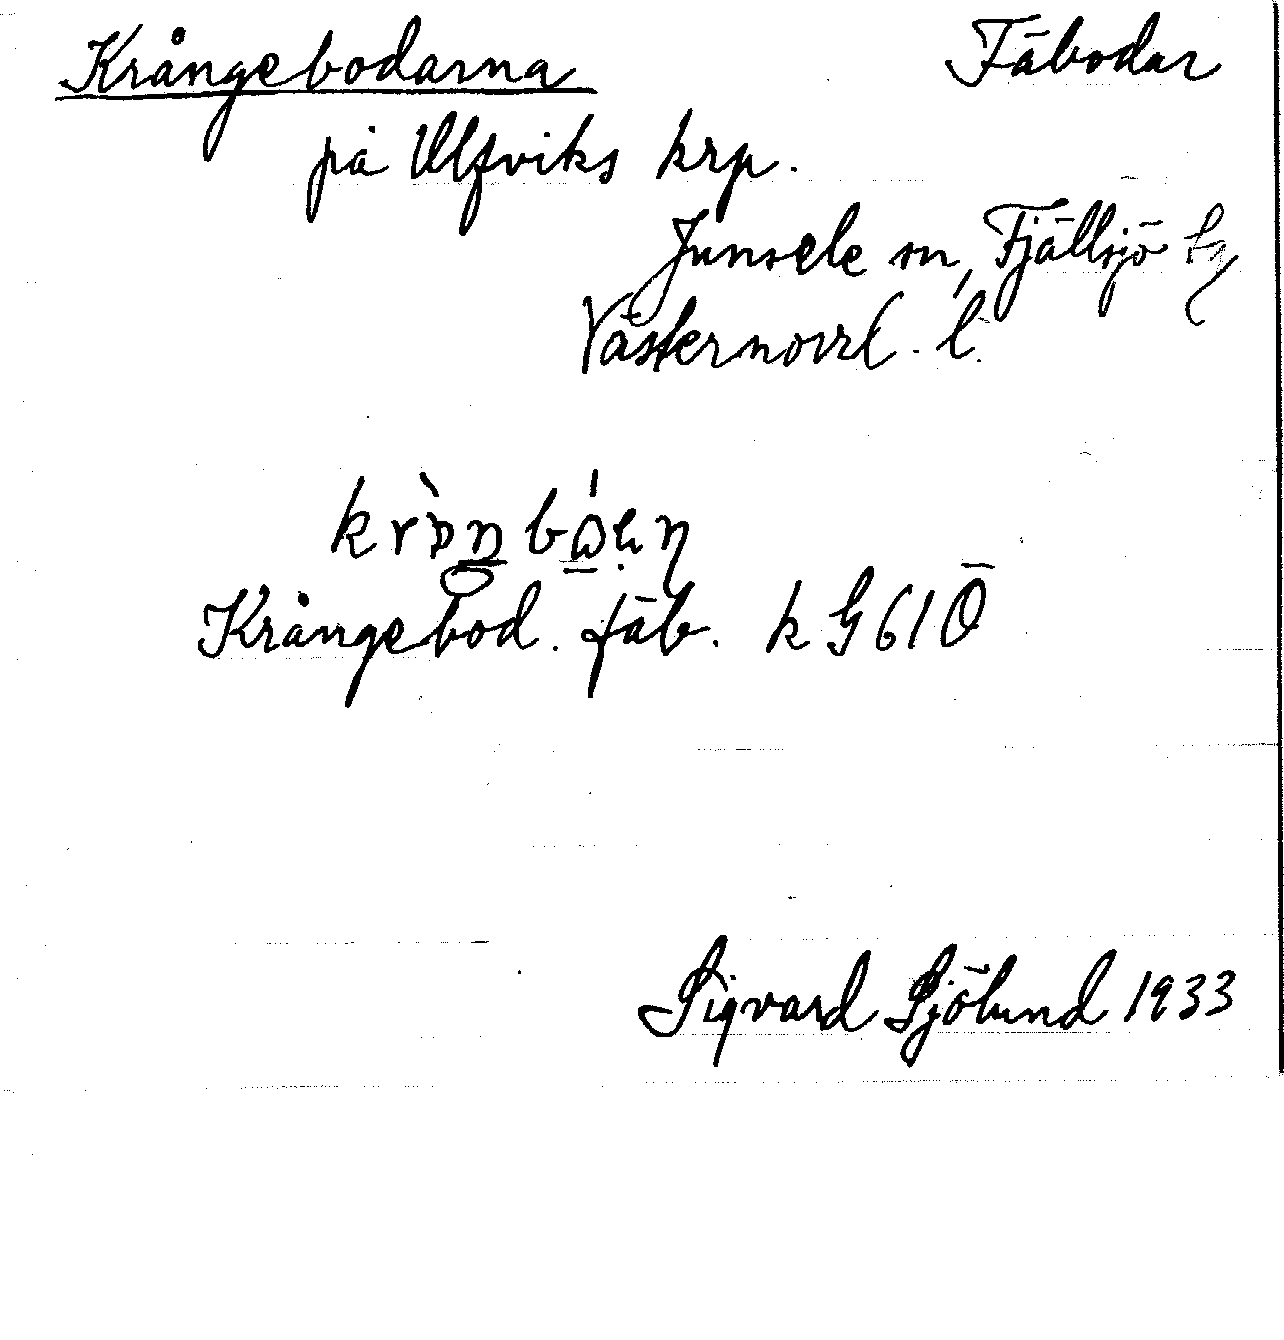 Krångebodarna Fäbodar
på Ulfviks krp.
Junsele sn, Fjällsjö tg
Västernorrl. l.
Krångebod. fäb. k G 61 Ö
Sigvard Sjölund 1933